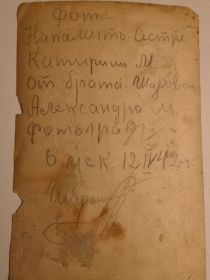 Фото.
На память. Сестре
Катирини М.
от брата. Шарова
Александра М
Фотограф
Омск 12 IV 42 г.